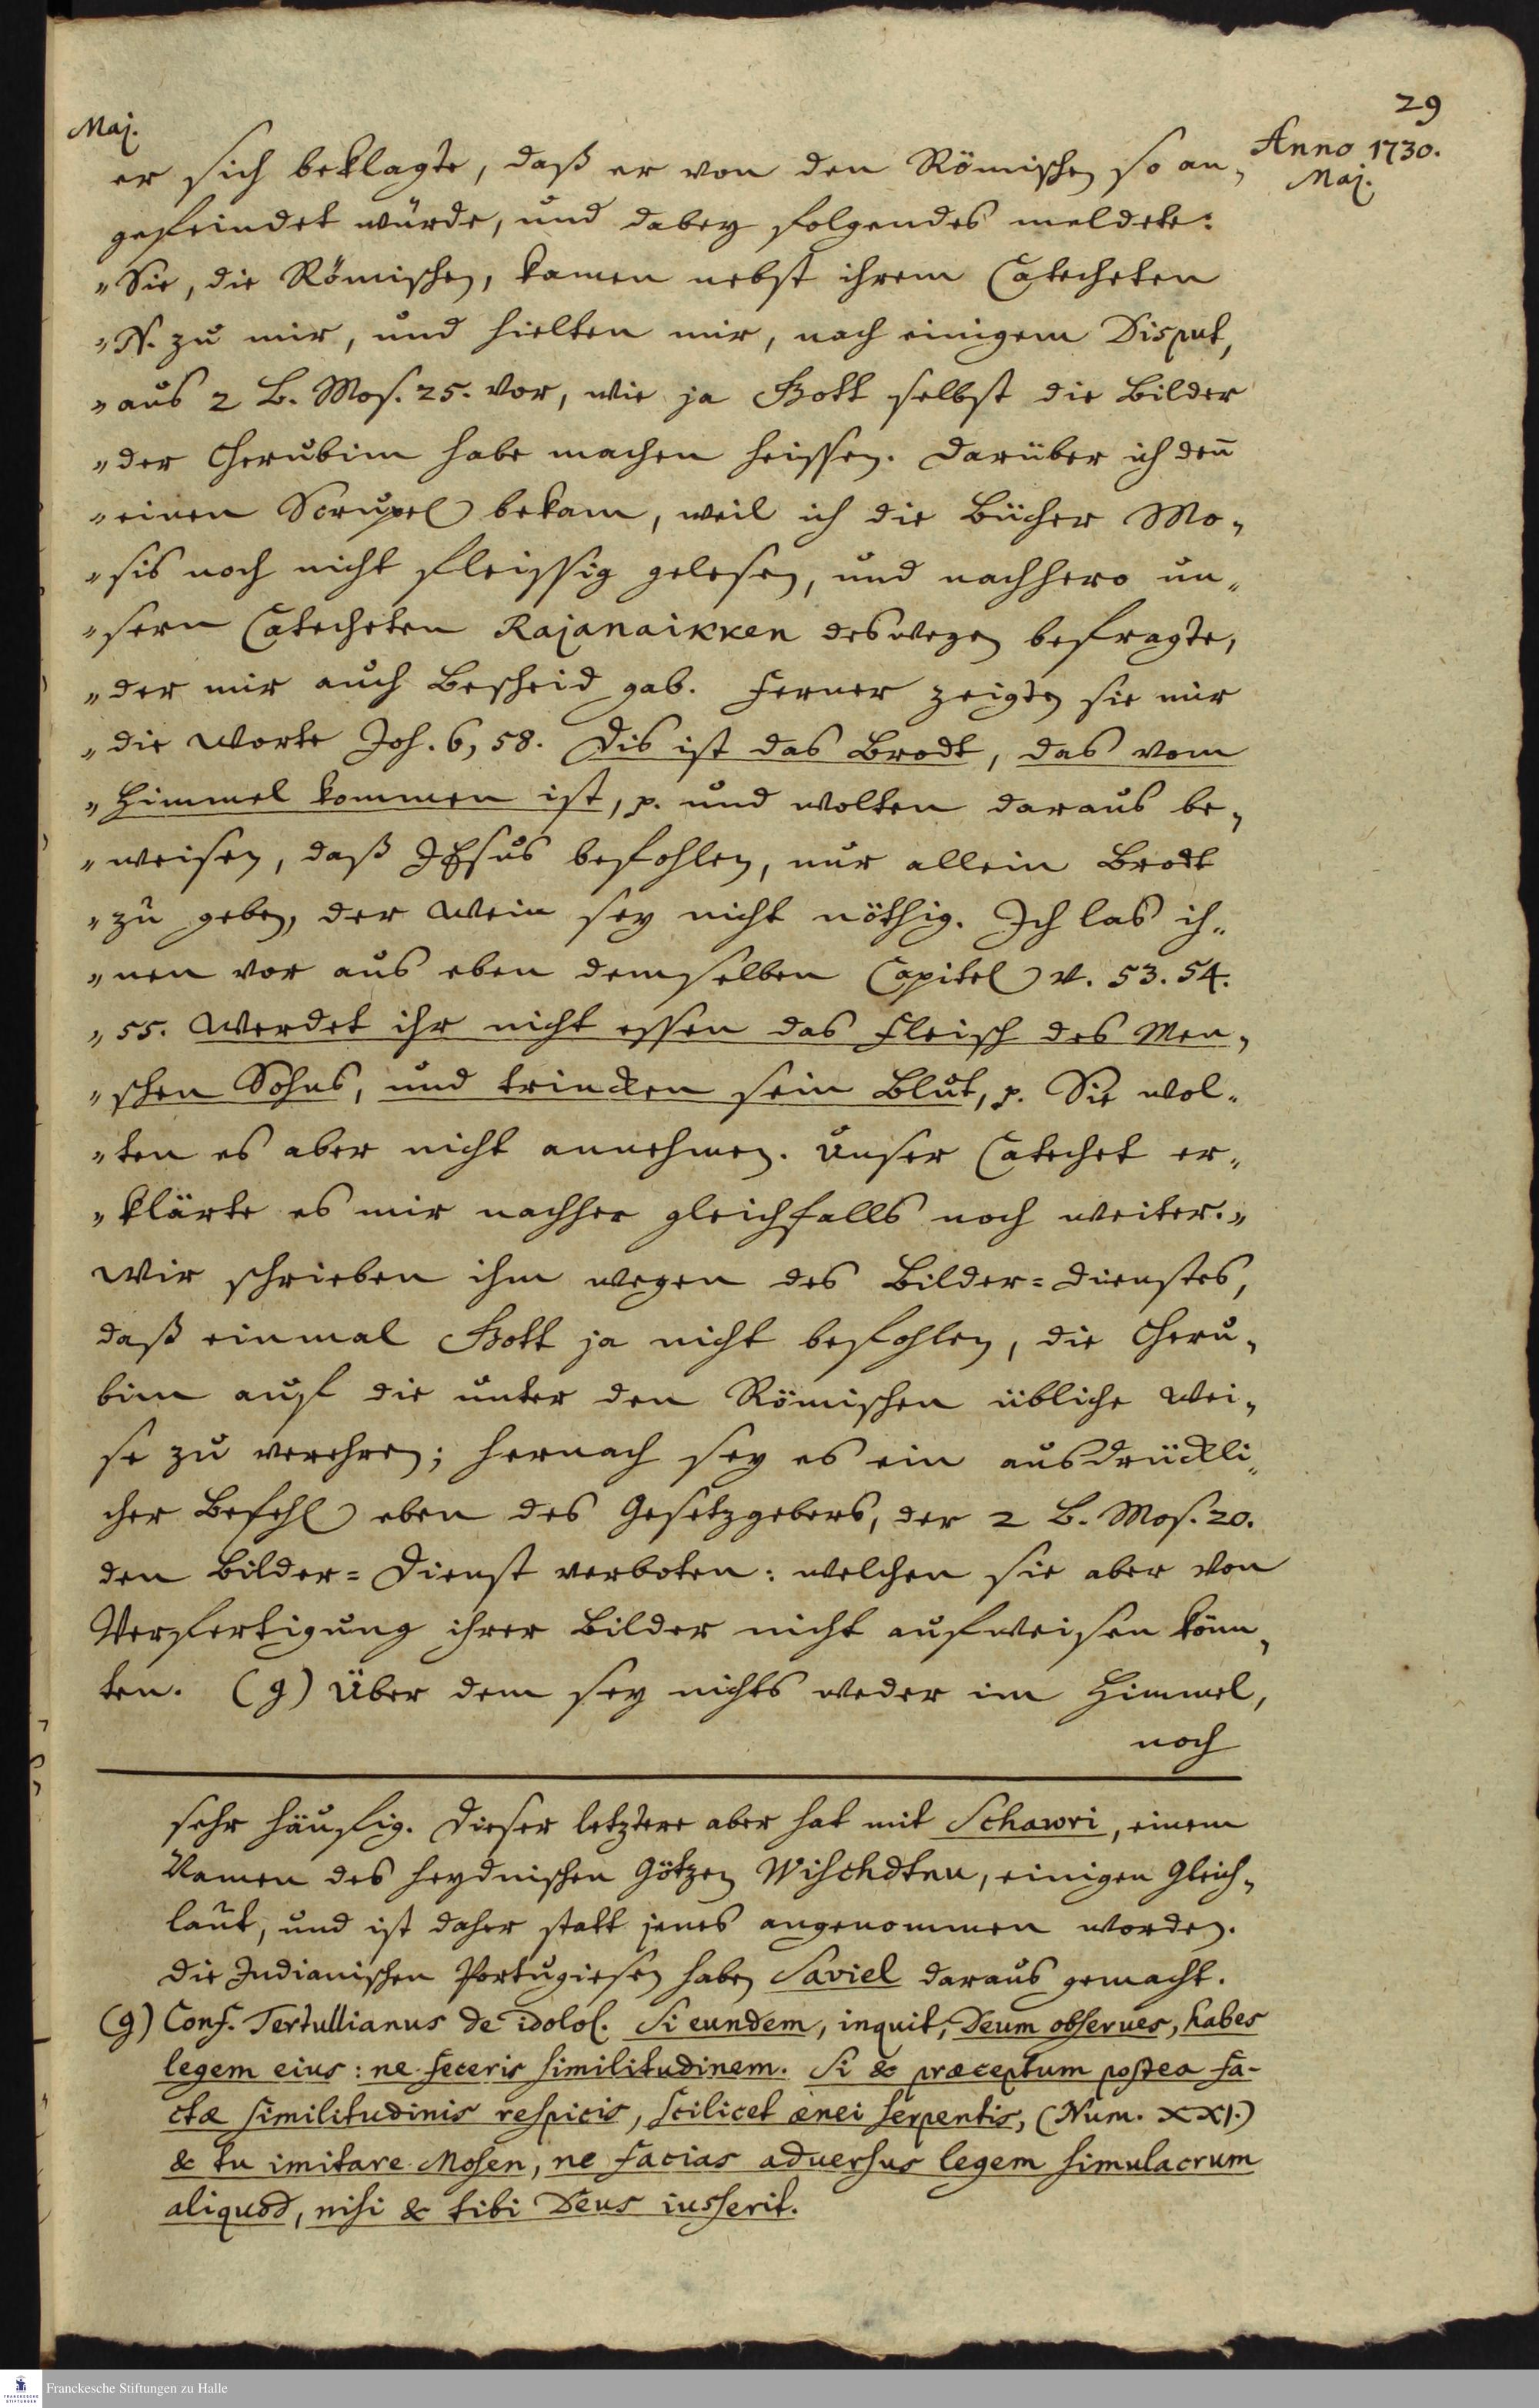 29
Maj.
Anno 1730.
Maj.
er sich beklagte, daß er von den Römischen so an-
gefeindet würde, und dabey folgendes meldete:
"Sie, die Römischen, kamen nebst ihrem Catecheten
"N. zu mir, und hielten mir, nach einigem Disput,
"aus 2 B. Mos. 25. vor, wie ja Gott selbst die Bilder
"der Cherubim habe machen heissen. Darüber ich den̄
"einen Scrupel bekam, weil ich die Bücher Mo-
"sis noch nicht fleissig gelesen, und nachhero un-
"sern Catecheten Rajanaikken deswegen befragte,
"der mir auch Bescheid gab. Ferner zeigten sie mir
"die Worte Joh. 6, 58. Dis ist das Brodt, das vom
"Himmel kommen ist, p. und wolten daraus be-
"weisen, daß JEsus befohlen, nur allein Brodt
"zu geben, der Wein sey nicht nöthig. Ich las ih-
"nen vor aus eben demselben Capitel v. 53. 54.
"55. Werdet ihr nicht essen das Fleisch des Men-
"schen Sohns, und trincken sein Blut, p. Sie wol-
"ten es aber nicht annehmen. Unser Catechet er-
"klärte es mir nachher gleichfalls noch weiter."
Wir schrieben ihm wegen des Bilder=dienstes,
daß einmal Gott ja nicht befohlen, die Cheru-
bim auf die unter den Römischen übliche Wei-
se zu verehren; hernach sey es ein ausdrückli-
cher Befehl eben des Gesetzgebers, der 2 B. Mos. 20.
den Bilder=Dienst verboten: welchen sie aber von
Verfertigung ihrer Bilder nicht aufweisen kön-
ten. (g) Über dem sey nichts weder im Himmel,
noch
sehr häufig. Dieser letztere aber hat mit Schawri, einem
Namen des heydnischen Götzen Wischdtnu, einigen Gleich-
laut, und ist daher statt jenes angenommen worden.
Die Indianischen Portugiesen haben Saviel daraus gemacht.
(g) Conf. Tertullianus de idolol. Si eundem, inquit, Deum obserues, habes
legem eius: ne feceris similitudinem. Si & præceptum postea fa-
ctæ similitudinis respicis, scilicet ænei serpentis, (Num. XXI.)
& tu imitare Mosen, ne facias aduersus legem simulacrum
aliquod, nisi & tibi Deus iusserit.
Franckesche Stiftungen zu Halle
FRANCKESCHE
STIFTUNGEN